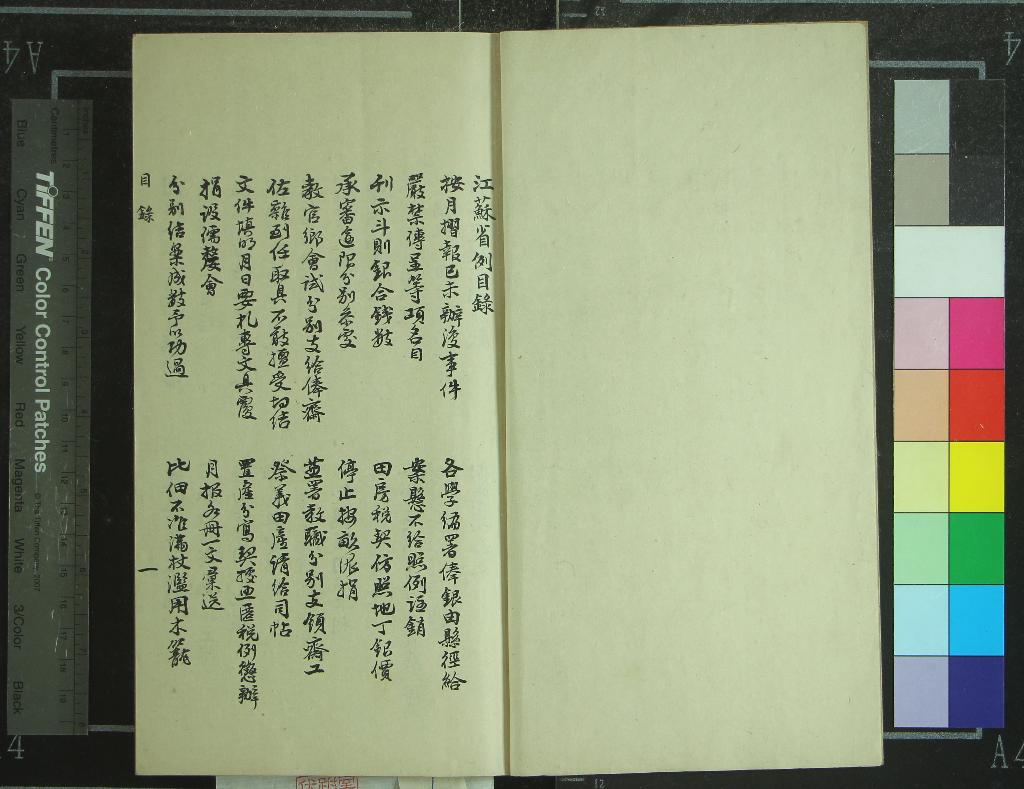 江蘇省例目錄
按月摺報已未辦浚事件
各學編署俸銀由縣徑給
嚴禁傳呈等項名目
案懸不給照例註銷
刊示斗則銀合錢數
田房稅契仿照地丁銀價
承審逾限分別參處
停止按畝派捐
教官鄉會試分別支給俸齋
兼署教職分別支領齋工
佐雜到任取具不敢擅受切結
祭義田產請給司帖
文件填明月日要札專文具覆
置產分寫契據照匿稅例懲辦
捐設儒嫠會
月報各冊一文彙送
分別結案成數予以功過
比佃不准滿杖濫用木籠
目錄
一
A4
4
A4
A4
TIFFEN Color Control Patches
© The Tiffen Company, 2007
Centimetres
Inches
Blue Cyan Green Yellow Red Magenta White 3/Color Black